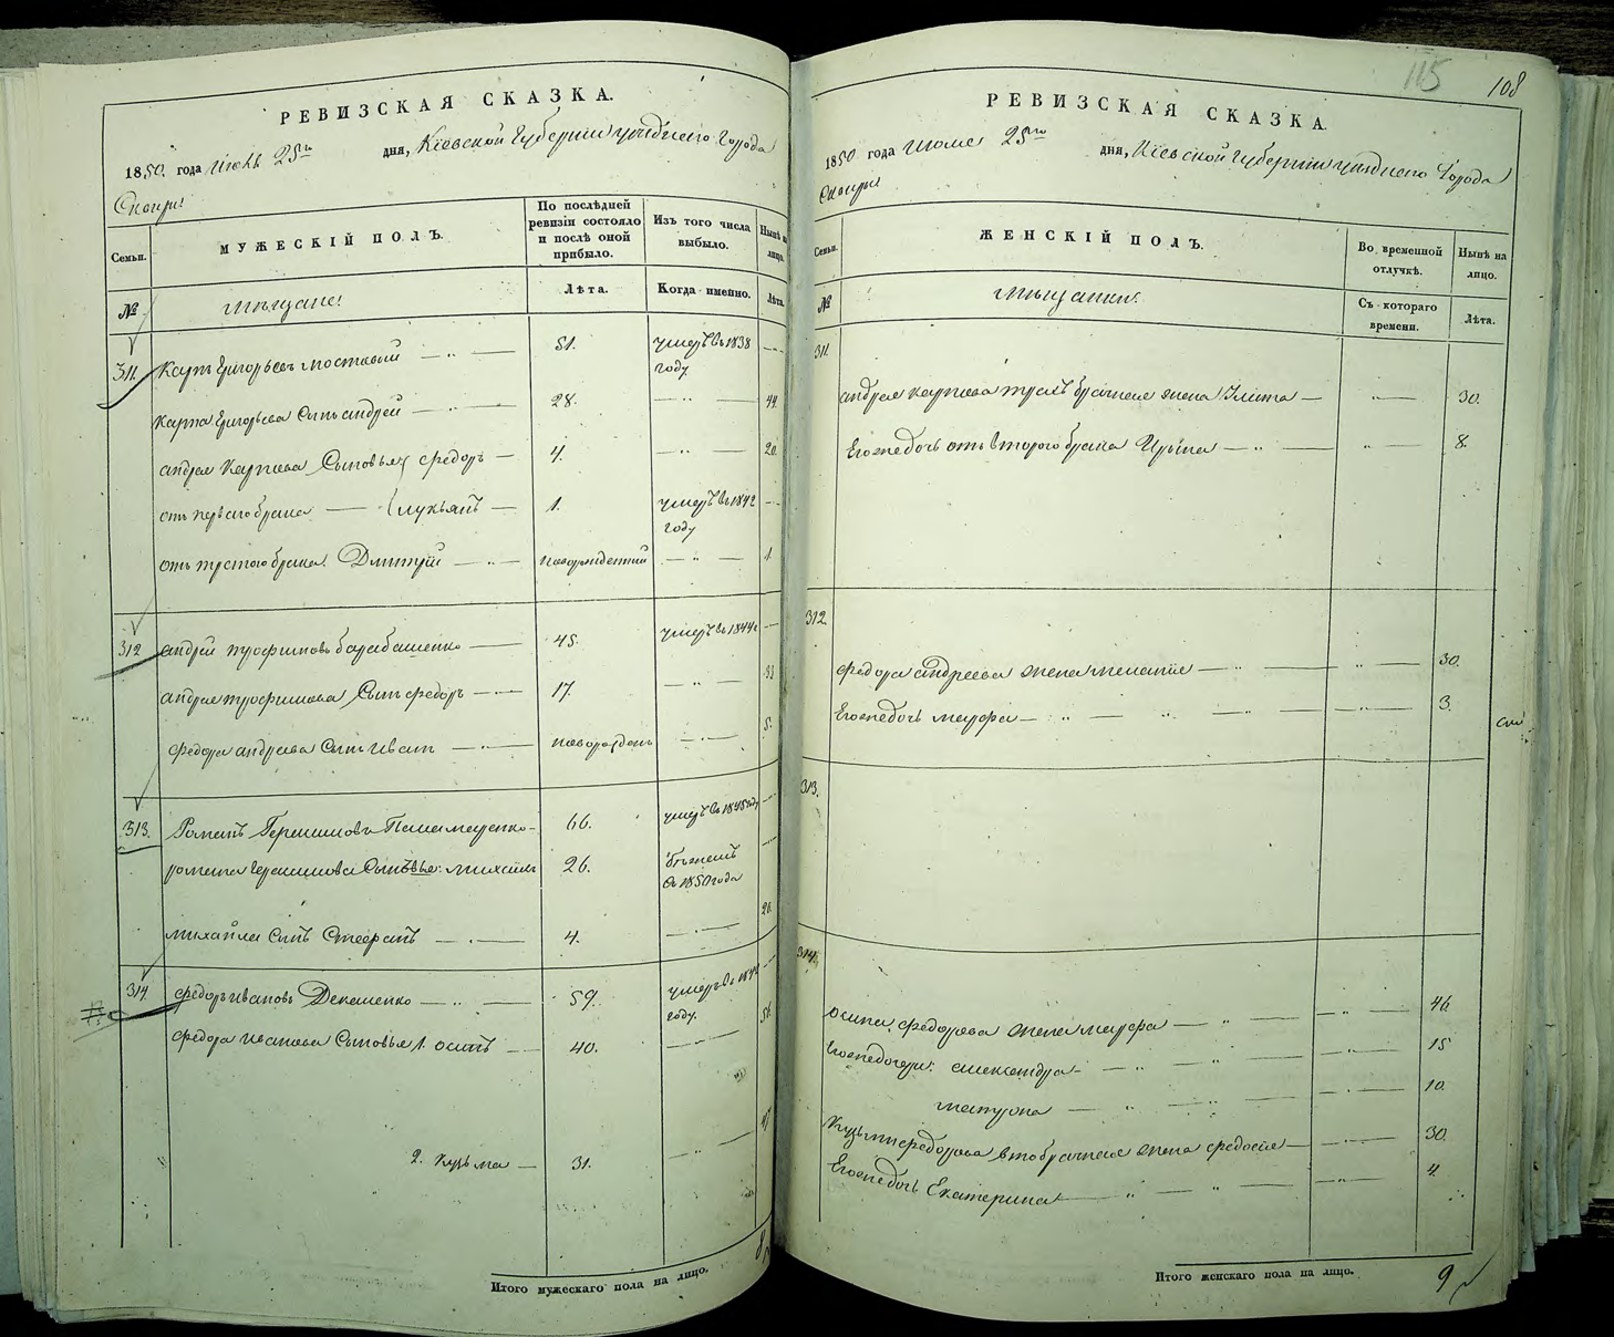 РЕВИЗСКАЯ СКАЗКА.
1850. года Июнь 25го дня, Кіевской Губерніи уѣзднего Города
Сквиры
Семьи.
МУЖЕСКІЙ ПОЛЪ.
По послѣдней
ревизіи состояло
и послѣ оной
прибыло.
Изъ того числа
выбыло.
Нынѣ на
лицо.
№
мѣщане.
Лѣта.
Когда именно.
Лѣта.
311. Карпъ Григорьевъ Мостовый 51. умеръ въ 1838
году
Карпа Григорьева Сынъ андрей 28. 44.
андрея Карпова Сыновья федоръ 4. 20.
отъ перваго брака лукьянъ 1. умеръ въ 1842
году
отъ третого брака Дмитрій новорожденный 1.
312 андрей трофимовъ барабашенко 45. умеръ въ 1844г
андрея трофимова Сынъ федоръ 17. 33
федора андреева Сынъ иванъ новорожден 5.
313. Романъ Герасимовъ умеръ въ 1845 году
66.
романа Герасимова Сыновья: михаилъ 26.
въ 1850 года
михайла Сынъ Стефанъ 4. 20.
314 федоръ ивановъ 59. умеръ въ
году.
федора иванова Сыновья 1. осипъ 40.
2. Кузьма 31.
Итого мужескаго пола на лицо. 8
115
108
РЕВИЗСКАЯ СКАЗКА.
1850 года июня 25го дня, Кіевской Губерніи уѣзднего Города
Сквиры
Семьи.
ЖЕНСКІЙ ПОЛЪ.
Во временной
отлучкѣ.
Нынѣ на
лицо.
№
мѣщанки.
Съ котораго
времени.
Лѣта.
311.
андрея карпова жена 30.
Егоже дочь отъ второго брака Ирына 8.
312
федора андреева жена меланія 30.
Егоже дочь марфа 3.
313.
314.
осипа федорова жена марфа 46
Егоже дочери: александра 15
матрона 10.
Кузьми федорова жена федосія 30.
Егоже дочь Екатерина 4
Итого женскаго пола на лицо. 9